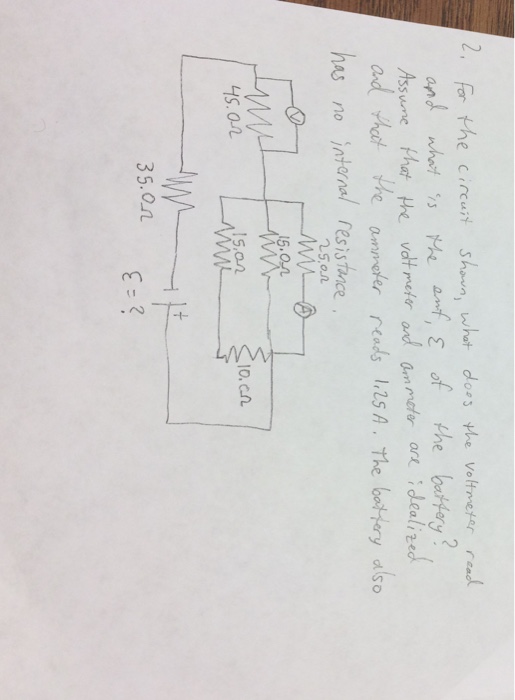 2. For the circuit shown, what does the voltmeter read
and what is the emf, ℰ of the battery?
Assume that the voltmeter and ammeter are idealized
and that the ammeter reads 1.25A. The battery also
has no internal resistance.
V
A
25.0Ω
45.0Ω
15.0Ω
15.0Ω
10.0Ω
35.0Ω
+
ℰ = ?